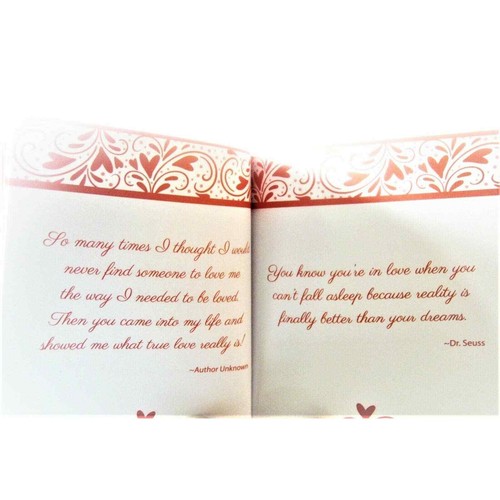 So many times I thought I would
never find someone to love me
the way I needed to be loved.
Then you came into my life and
showed me what true love really is!
~Author Unknown
You know you're in love when you
can't fall asleep because reality is
finally better than your dreams.
~Dr. Seuss